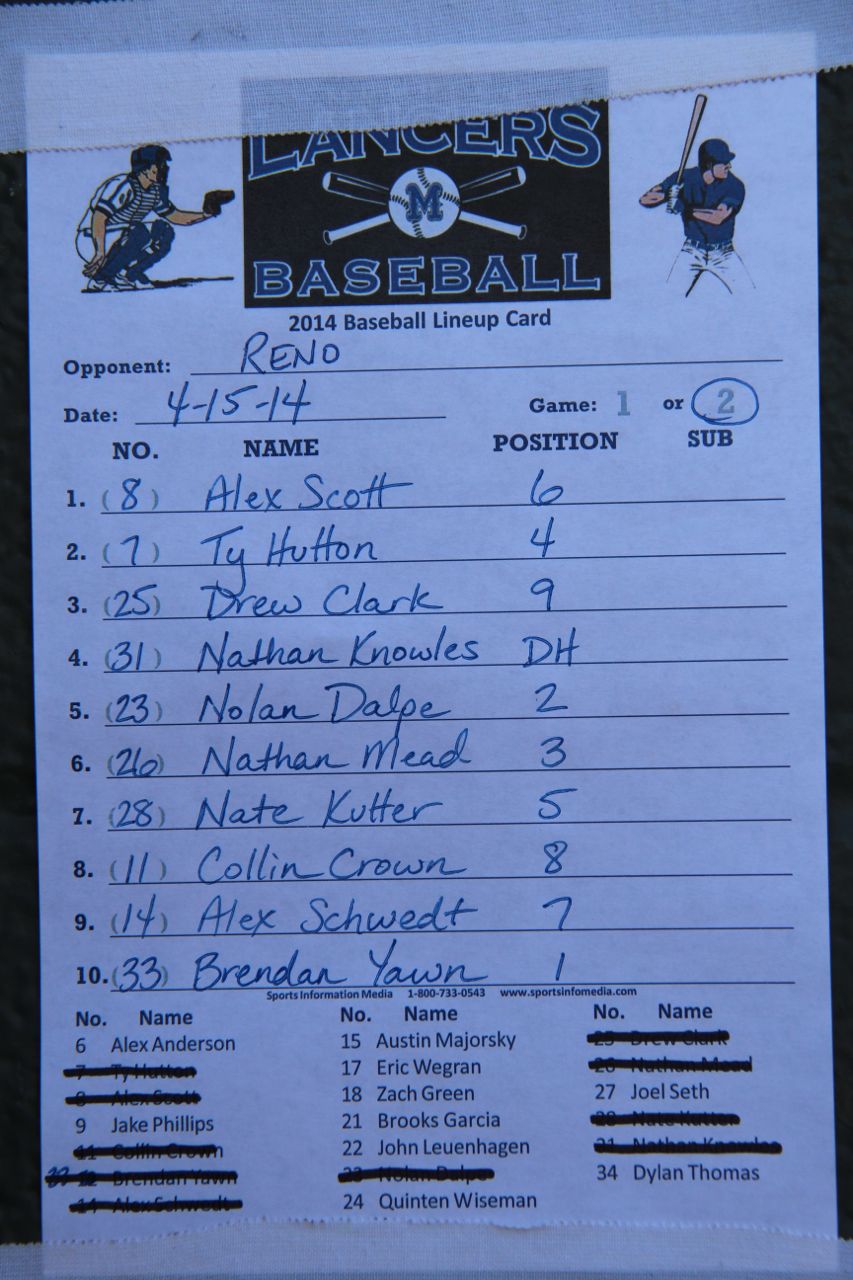 LANCERS
M
BASEBALL
2014 Baseball Lineup Card
Opponent: RENO
Date: 4-15-14 Game: 1 or 2
NO. NAME POSITION SUB
1. (8) Alex Scott 6
2. (7) Ty Hutton 4
3. (25) Drew Clark 9
4. (31) Nathan Knowles DH
5. (23) Nolan Dalpe 2
6. (26) Nathan Mead 3
7. (28) Nate Kutter 5
8. (11) Collin Crown 8
9. (14) Alex Schwedt 7
10. (33) Brendan Yawn 1
Sports Information Media 1-800-733-0543 www.sportsinfomedia.com
No. Name No. Name No. Name
6 Alex Anderson 15 Austin Majorsky 25 Drew Clark
7 Ty Hutton 17 Eric Wegran 26 Nathan Mead
8 Alex Scott 18 Zach Green 27 Joel Seth
9 Jake Phillips 21 Brooks Garcia 28 Nate Kutter
11 Collin Crown 22 John Leuenhagen 31 Nathan Knowles
33 Brendan Yawn 23 Nolan Dalpe 34 Dylan Thomas
14 Alex Schwedt 24 Quinten Wiseman